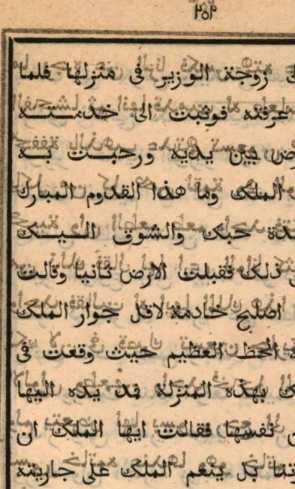 ٢٥٢
زوجة الوزير في منزلها فلما
عرفته فوثبت الى خدمته
بين يديه ورحبت به
الملك وما هذا القدوم المبارك
حبك والشوق اليك
ذلك فقبلت الارض ثانيا وقالت
اصلح خادمة لاقل جوار الملك
الحظ العظيم حيث وقعت في
بهذه المنزلة فمد يده اليها
نفسها فقالت ايها الملك ان
بل ينعم الملك على جاريته